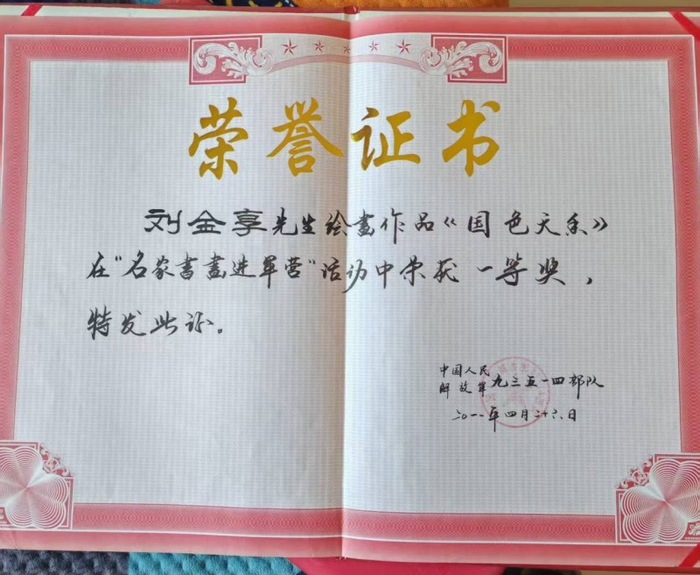 荣誉证书
刘金享先生绘畫作品《国色天香》
在“名家書畫进军营”活动中荣获一等奖，
特发此证。
中国人民
解放军九三五一四部队
二〇一一年四月二十六日